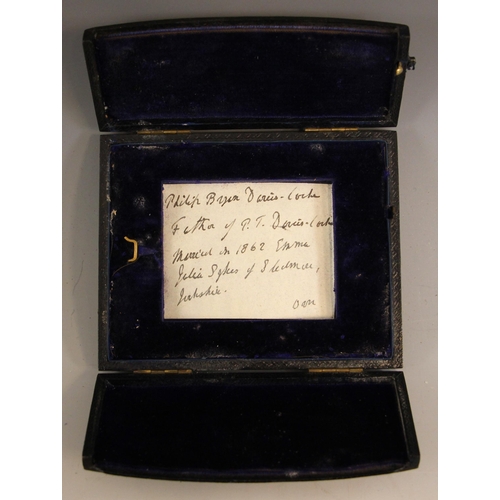 Philip Bryan Davies-Cooke
Father of P. T. Davies-Cooke
Married in 1862 Emma
Julia Sykes of Sledmere,
Yorkshire.